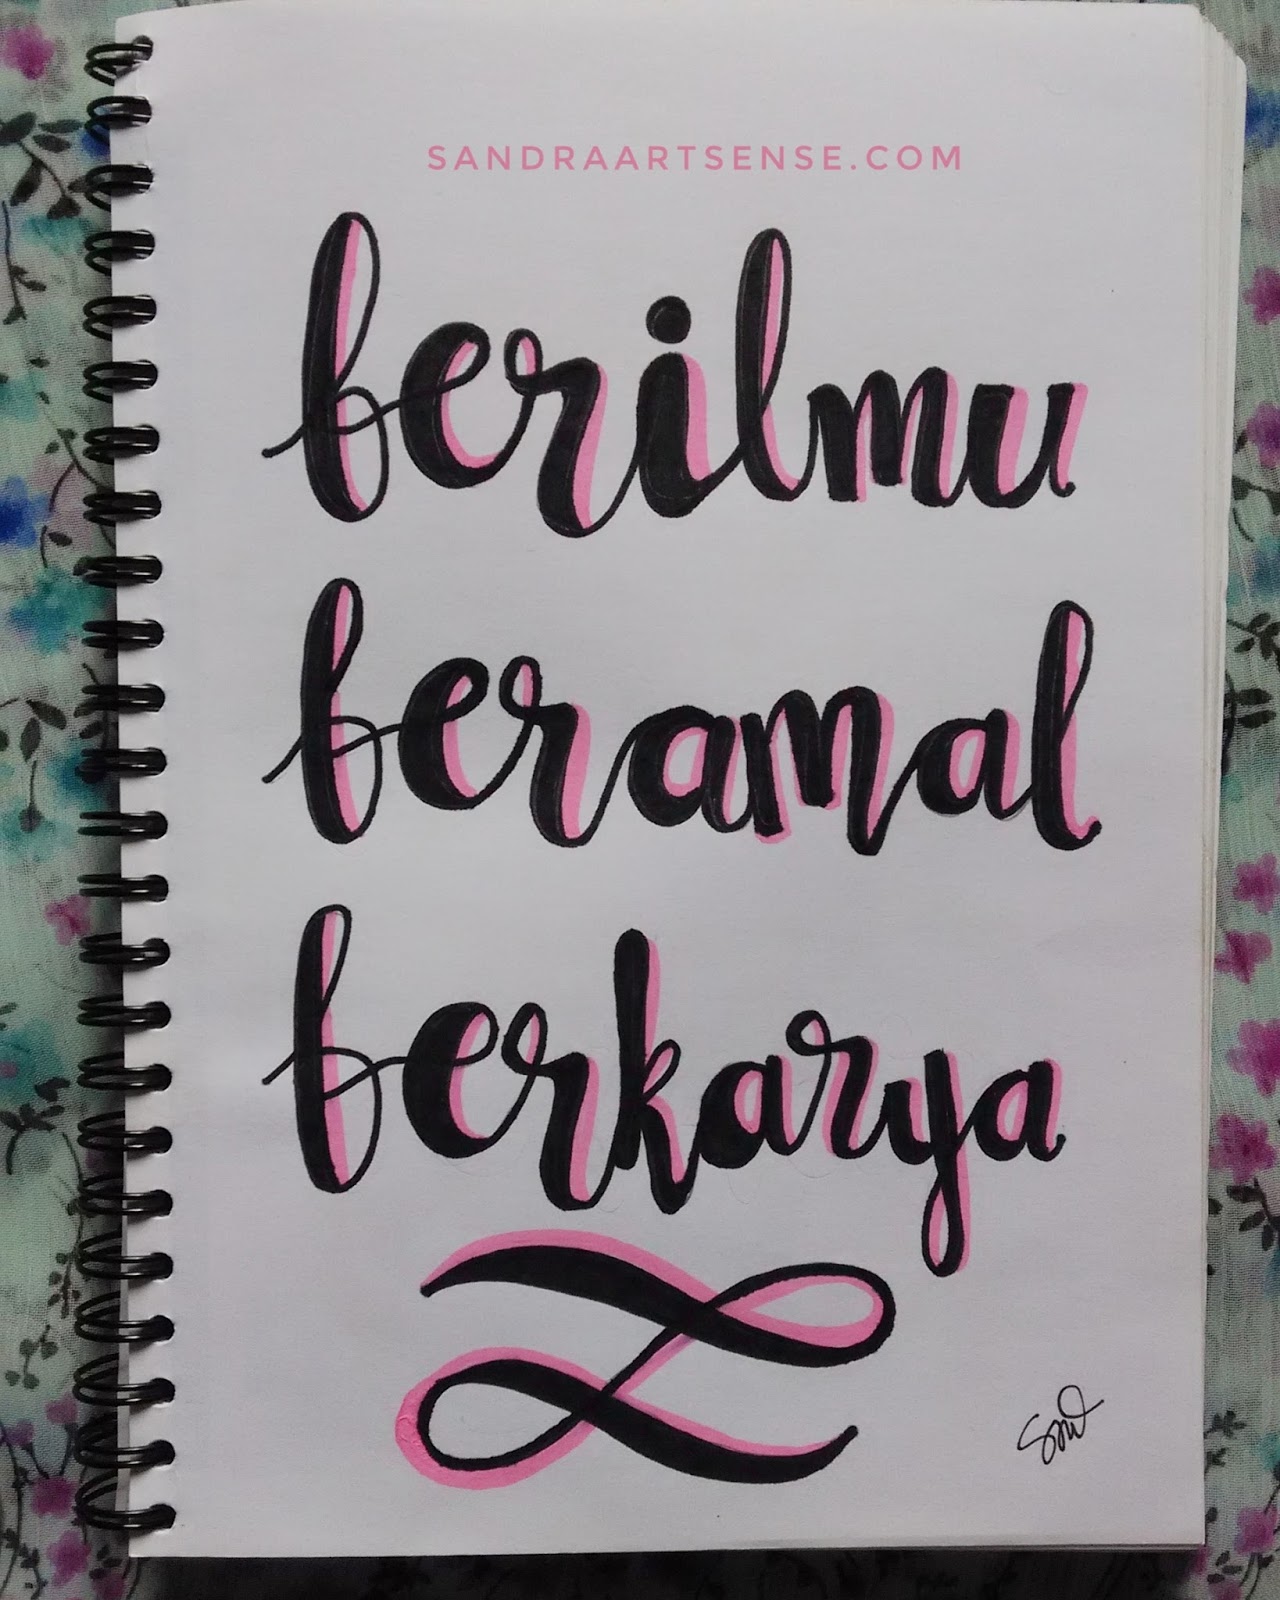 SANDRAARTSENSE.COM
berilmu
beramal
berkarya